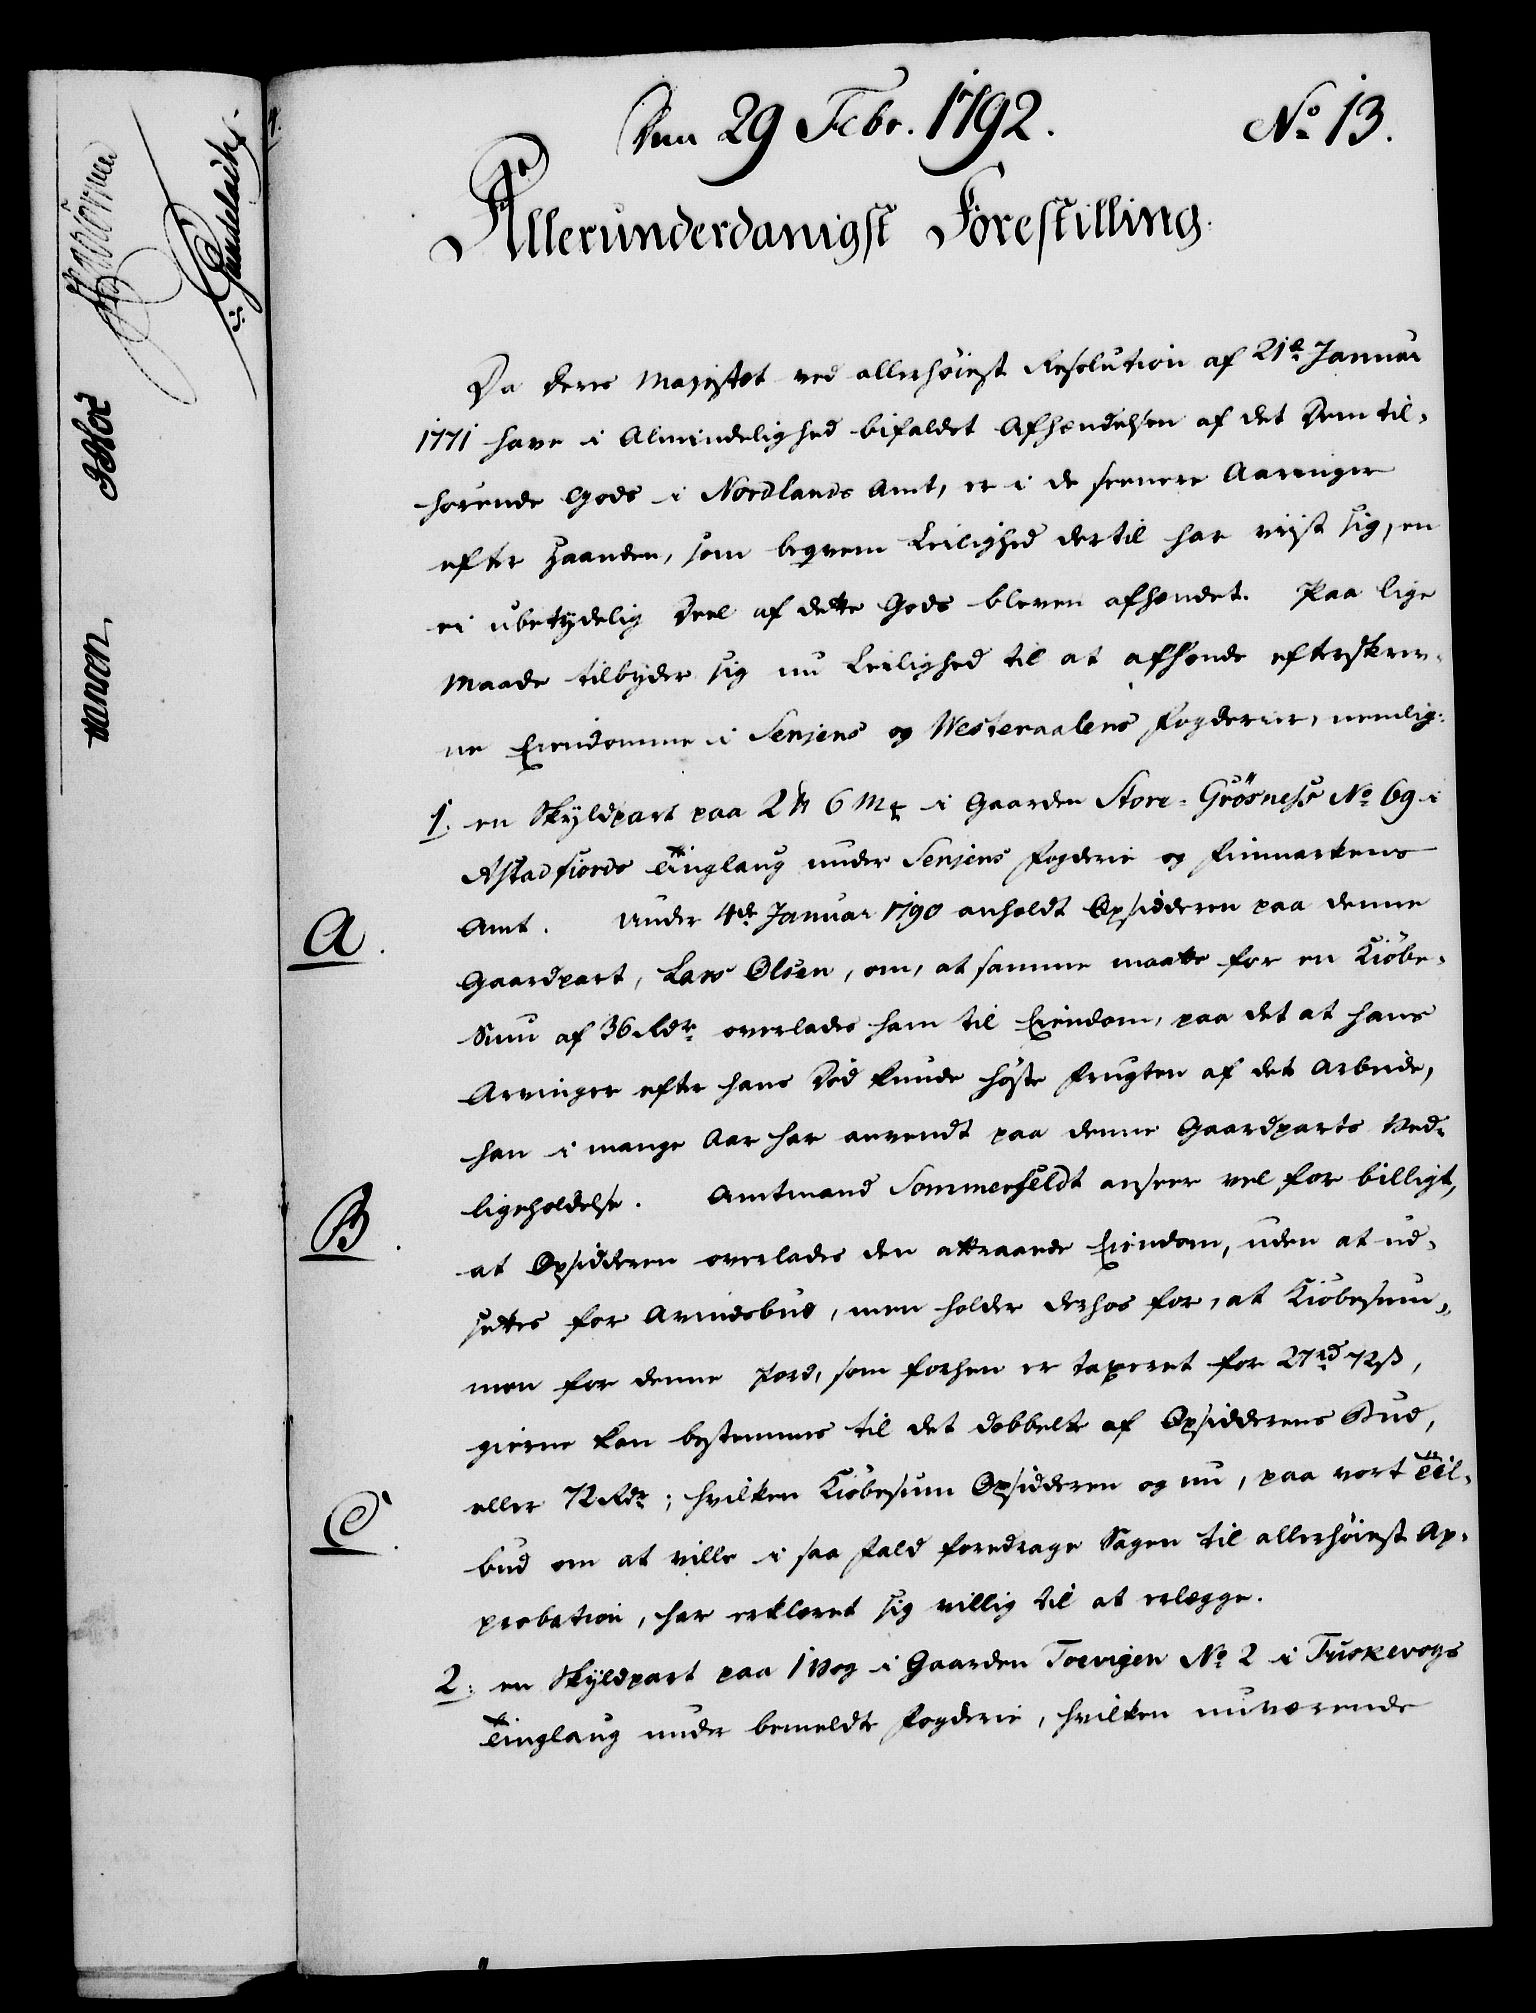 Den 29 Febr. 1792.
No 13.
Allerunderdanigst Forestilling.
Da Deres Majestet ved allerhöiest Resolution af 21de Januar
1771 have i Almindelighed bifaldet Afhændelsen af det Dem til-
hörende Gods i Nordlands Amt, er i de seenere Aaringer
efter Haanden, som beqvem Leilighed dertil har viist sig, en
ei ubetydelig Deel af dette Gods bleven afhændet. Paa lige
Maade tilbyder sig nu Leilighed til at afhænde efterskrev-
ne Eiendomme i Senjens og Westeraalens Fogderier, nemlig:
1. en Skyldpart paa 2 6 Mk i Gaarden Store-Grösness No 69 i
Astadfjords Tinglaug under Senjens Fogderie og Finmarkens
A.
Amt. Under 4de Januar 1790 anholdt Opsidderen paa denne
Gaardpart, Lars Olsen, om, at samme maatte for en Kiöbe-
Sum af 36 Rdr overlades ham til Eiendom, paa det at hans
Arvinger efter hans Död kunde höste Frugten af det Arbeide,
han i mange Aar har anvendt paa denne Gaardparts Ved-
B.
ligeholdelse. Amtmand Sommerfeldt anseer vel for billigt,
at Opsidderen overlades den attraaede Eiendom, uden at ud-
settes for Avindsbud, men holder derhos for, at Kiöbesum-
men for denne Jord, som forhen er taxeret for 27rd 72ß,
gierne kan bestemmes til det dobbelte af Opsidderens Bud,
C.
eller 72 Rdr; hvilken Kiöbesum Opsidderen og nu, paa vort Til-
bud om at ville i saa Fald foredrage Sagen til allerhöiest Ap-
probation, har erklæret sig villig til at erlægge.
2. en Skyldpart paa 1 Vog i Gaarden Toevigen No 2 i Tuskevogs
Tinglaug under bemeldte Fogderie, hvilken nuværende